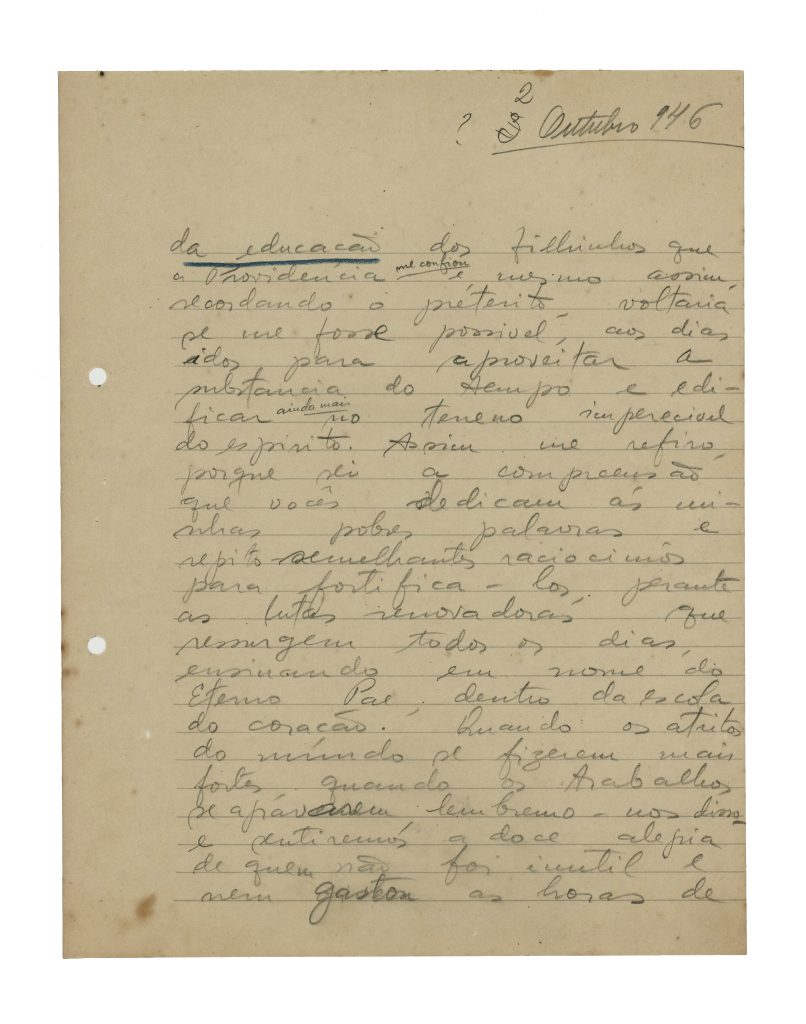 2
? Outubro 946
da educacão dos filhinhos que
a Providencia me confiou e mesmo assim,
recordando o préterito, voltaria
se me fosse possivel, aos dias
idos para aproveitar a
substancia do tempo e edi-
ficar ainda mais no terreno imperecivel
do espirito. Assim me refiro,
porque sei a compreensão
que vocês dedicam ás mi-
nhas pobres palavras e
repito semelhantes raciocinios
para fortifica-los, perante
as lutas renovadoras que
ressurgem todos os dias,
ensinando em nome do
Eterno Pae, dentro da escola
do coracão. Quando os atritos
do mundo se fizerem mais
fortes quando os trabalhos
se agravarem, lembremo-nos disso
e sentiremos a doce alegria
de quem não foi inutil e
nem gastou as horas de